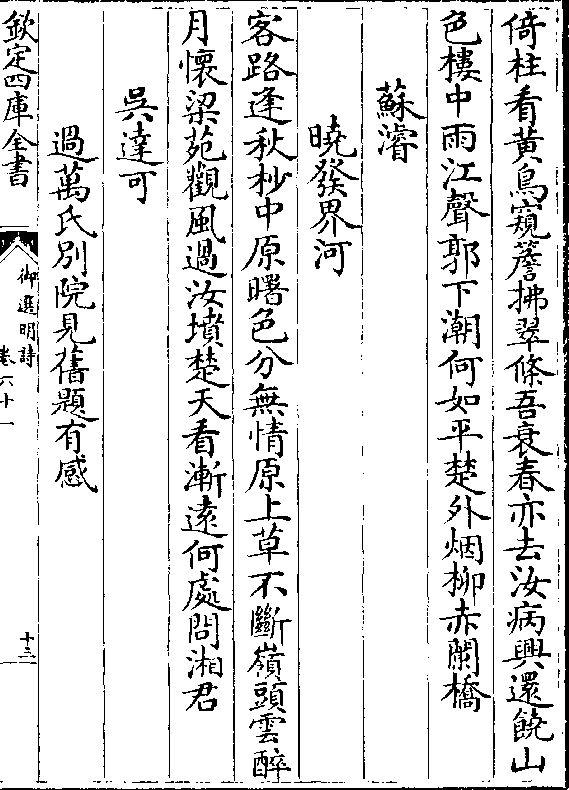 倚柱看黄鳥窺簷拂翠條吾衰春亦去汝病興還饒山
色樓中雨江聲郭下潮何如平楚外烟柳赤闌橋
蘇濬
曉發界河
客路逢秋杪中原曙色分無情原上草不斷嶺頭雲醉
月懷梁苑觀風過汝墳楚天看漸遠何處問湘君
吳達可
過萬氏別院見舊題有感
欽定四庫全書
御選明詩
卷六十一
十三